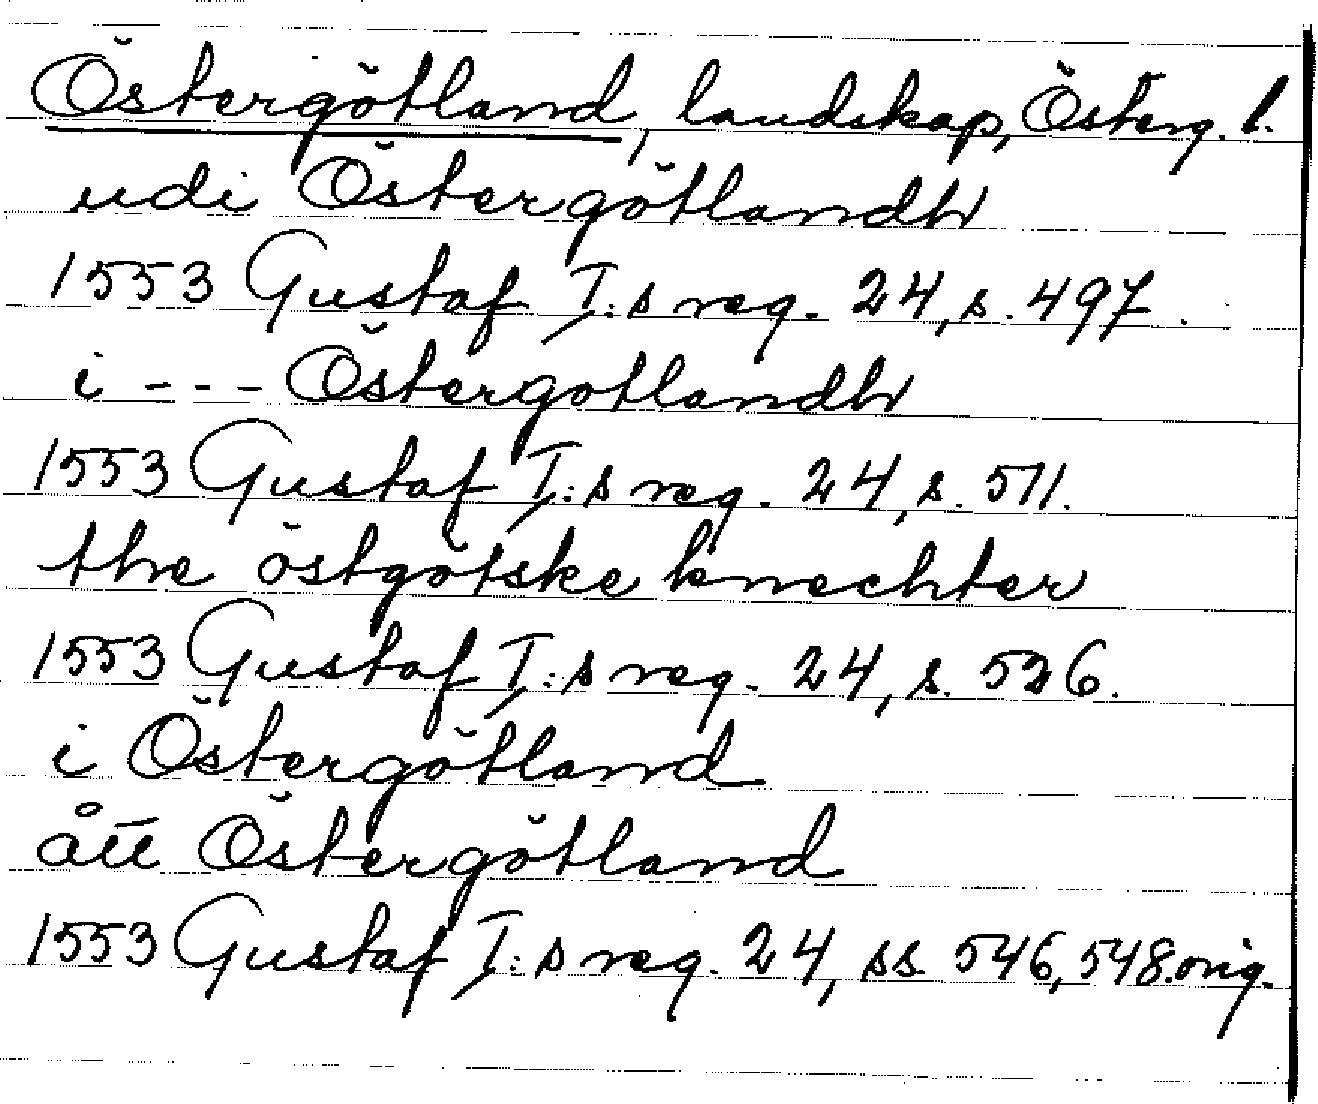 Östergötland, landskap, Österg. l.
udi Östergötlandh
1553 Gustaf I:s reg. 24, s. 497.
i - - - Östergotlandh
1553 Gustaf I:s reg. 24, s. 511.
the östgötske knechter
1553 Gustaf I:s reg. 24, s. 526.
i Östergötland
ått Östergötland
1553 Gustaf I:s reg. 24, ss. 546, 548. orig.